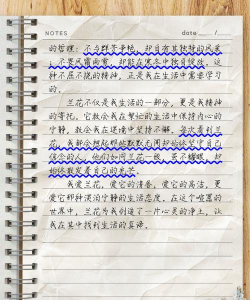 NOTES
date ___ /___
的哲理：不与群芳争艳，却自有其独特的风采
；不畏风霜雨雪，却能在寒冬中独自绽放。这
种不屈不挠的精神，正是我在生活中需要学习
的。
兰花不仅是我生活的一部分，更是我精神
的寄托。它教会我在繁忙的生活中保持内心的
宁静，教会我在逆境中坚持不懈。每次看到兰
花，我都会想起那些默默无闻却始终坚守自己
信念的人，他们如同兰花一般，虽不耀眼，却
始终散发着自己的光芒。
我爱兰花，爱它的清香，爱它的高洁，更
爱它那种淡泊宁静的生活态度。在这个喧嚣的
世界中，兰花为我创造了一片心灵的净土，让
我在其中找到生活的真谛。